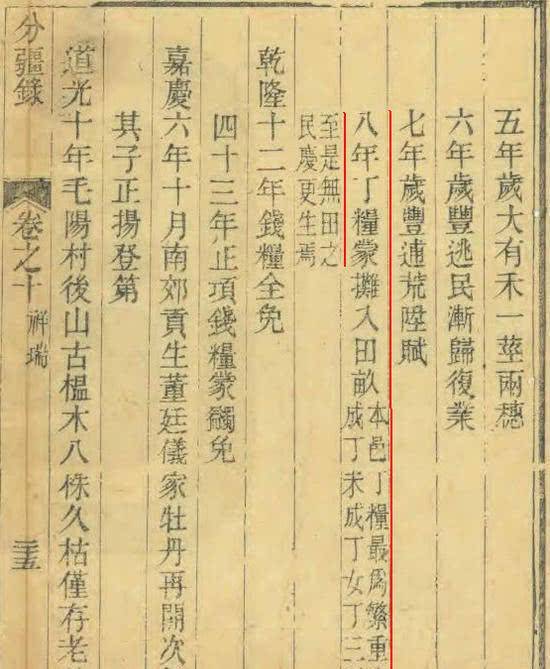 五年歲大有禾一莖兩穗
六年歲豐逃民漸歸復業
七年歲豐逋荒陞賦
八年丁糧蒙攤入田畝
本邑丁糧最爲繁重
成丁未成丁女丁三
至是無田之
民慶更生焉
乾隆十二年錢糧全免
四十三年正項錢糧蒙蠲免
嘉慶六年十月南郊貢生董廷儀家牡丹再開次
其子正揚登第
道光十年毛陽村後山古榅木八株久枯僅存老
分疆錄 卷之十 祥瑞 三五